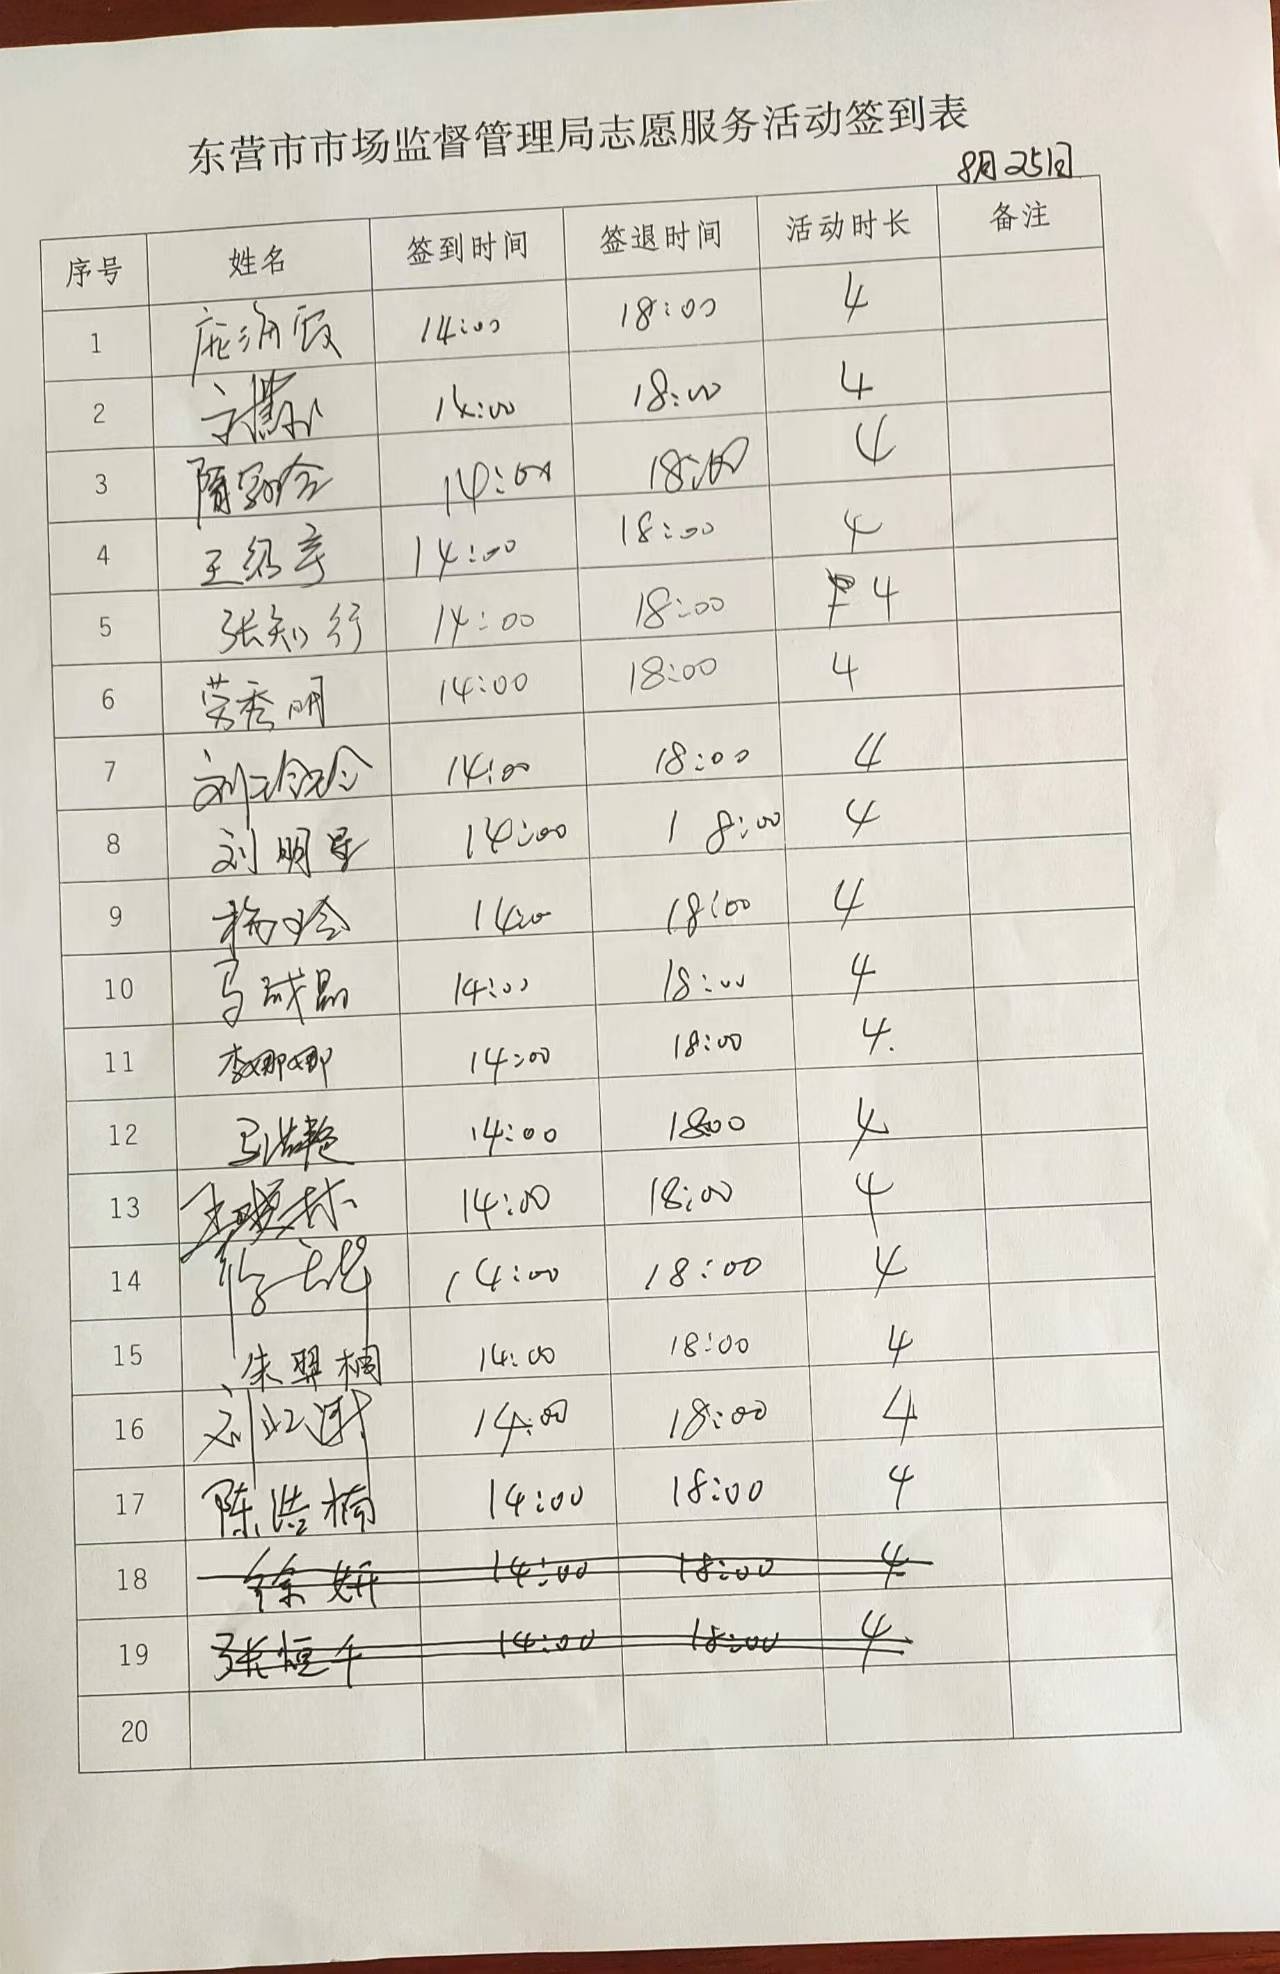 东营市市场监督管理局志愿服务活动签到表
8月25日
序号 姓名 签到时间 签退时间 活动时长 备注
1 14:00 18:00 4
2 14:00 18:00 4
3 14:00 18:00 4
4 14:00 18:00 4
5 张知行 14:00 18:00 4
6 劳秀明 14:00 18:00 4
7 刘玲玲 14:00 18:00 4
8 刘明星 14:00 18:00 4
9 杨晗 14:00 18:00 4
10 马成晶 14:00 18:00 4
11 李娜娜 14:00 18:00 4.
12 14:00 1800 4
13 14:00 18:00 4
14 14:00 18:00 4
15 朱羿桐 14:00 18:00 4
16 14:00 18:00 4
17 陈浩楠 14:00 18:00 4
18 徐妍 14:00 18:00 4
19 张恒午 14:00 18:00 4
20